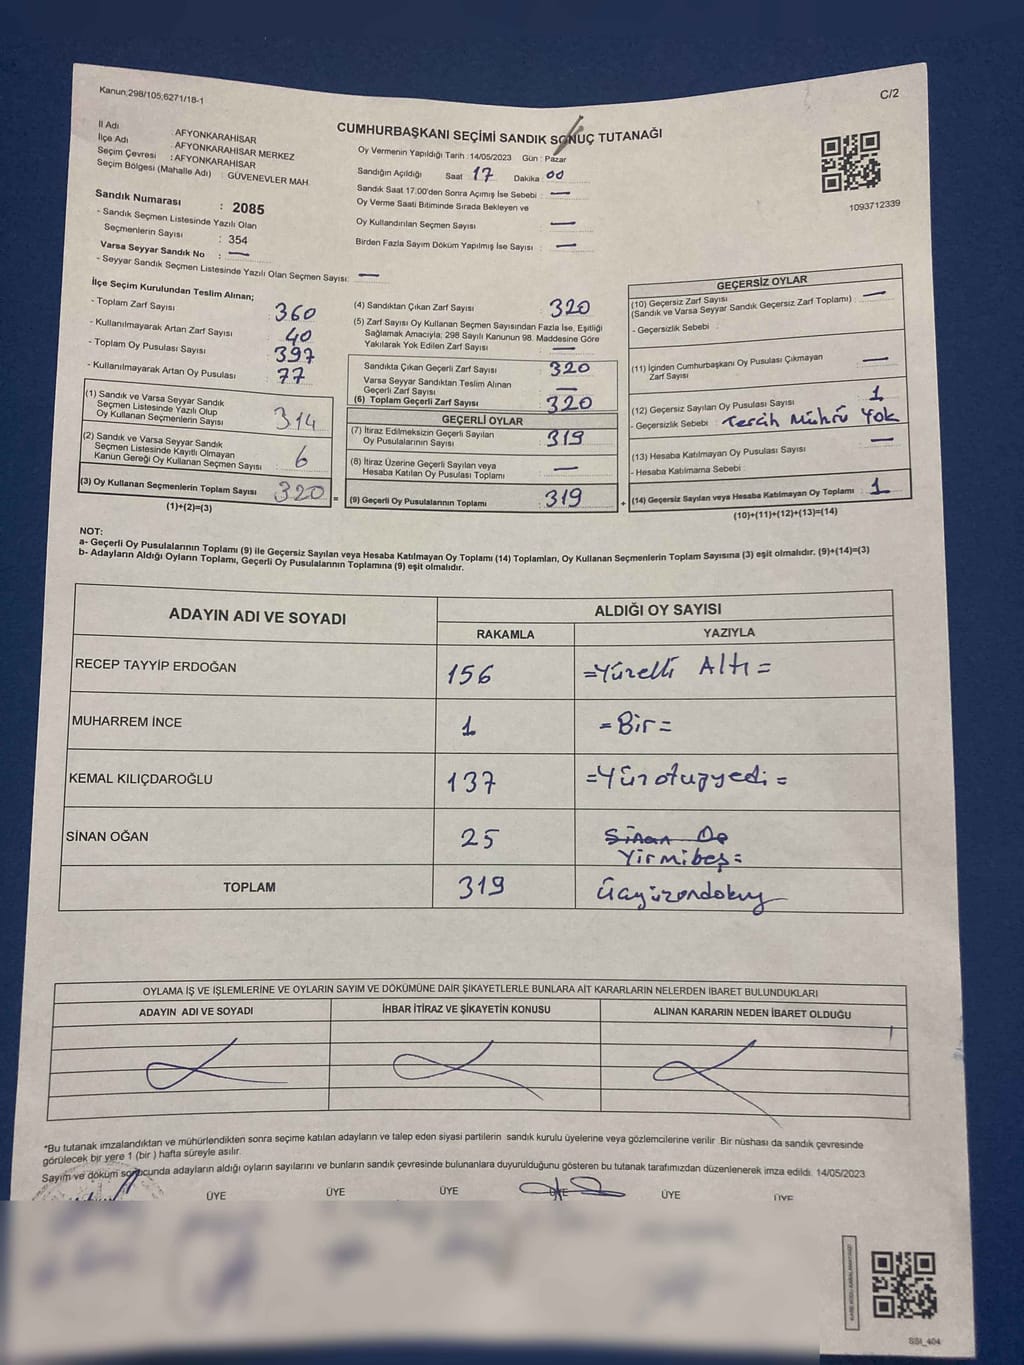 Kanun;298/105;6271/18-1
C/2
CUMHURBAŞKANI SEÇİMİ SANDIK SONUÇ TUTANAĞI
İl Adı : AFYONKARAHİSAR
İlçe Adı : AFYONKARAHİSAR MERKEZ
Seçim Çevresi : AFYONKARAHİSAR
Seçim Bölgesi (Mahalle Adı) : GÜVENEVLER MAH.
Sandık Numarası : 2085
- Sandık Seçmen Listesinde Yazılı Olan
Seçmenlerin Sayısı : 354
Varsa Seyyar Sandık No : —
- Seyyar Sandık Seçmen Listesinde Yazılı Olan Seçmen Sayısı: —
Oy Vermenin Yapıldığı Tarih : 14/05/2023 Gün : Pazar
Sandığın Açıldığı Saat 17 Dakika : 00
Sandık Saat 17:00'den Sonra Açımış İse Sebebi : —
Oy Verme Saati Bitiminde Sırada Bekleyen ve
Oy Kullandırılan Seçmen Sayısı : —
Birden Fazla Sayım Döküm Yapılmış İse Sayısı : —
1093712339
İlçe Seçim Kurulundan Teslim Alınan;
- Toplam Zarf Sayısı : 360
- Kullanılmayarak Artan Zarf Sayısı : 40
- Toplam Oy Pusulası Sayısı : 397
- Kullanılmayarak Artan Oy Pusulası : 77
(1) Sandık ve Varsa Seyyar Sandık
Seçmen Listesinde Yazılı Olup
Oy Kullanan Seçmenlerin Sayısı : 314
(2) Sandık ve Varsa Seyyar Sandık
Seçmen Listesinde Kayıtlı Olmayan
Kanun Gereği Oy Kullanan Seçmen Sayısı : 6
(3) Oy Kullanan Seçmenlerin Toplam Sayısı : 320 =
(1)+(2)=(3)
(4) Sandıktan Çıkan Zarf Sayısı : 320
(5) Zarf Sayısı Oy Kullanan Seçmen Sayısından Fazla İse, Eşitliği
Sağlamak Amacıyla; 298 Sayılı Kanunun 98. Maddesine Göre
Yakılarak Yok Edilen Zarf Sayısı : —
Sandıkta Çıkan Geçerli Zarf Sayısı : 320
Varsa Seyyar Sandıktan Teslim Alınan
Geçerli Zarf Sayısı : —
(6) Toplam Geçerli Zarf Sayısı : 320
GEÇERLİ OYLAR
(7) İtiraz Edilmeksizin Geçerli Sayılan
Oy Pusulalarının Sayısı : 319
(8) İtiraz Üzerine Geçerli Sayılan veya
Hesaba Katılan Oy Pusulası Toplamı : —
(9) Geçerli Oy Pusulalarının Toplamı : 319 +
GEÇERSİZ OYLAR
(10) Geçersiz Zarf Sayısı : —
(Sandık ve Varsa Seyyar Sandık Geçersiz Zarf Toplamı)
- Geçersizlik Sebebi :
(11) İçinden Cumhurbaşkanı Oy Pusulası Çıkmayan
Zarf Sayısı : —
(12) Geçersiz Sayılan Oy Pusulası Sayısı : 1
- Geçersizlik Sebebi : Tercih Mührü Yok
(13) Hesaba Katılmayan Oy Pusulası Sayısı : —
- Hesaba Katılmama Sebebi :
(14) Geçersiz Sayılan veya Hesaba Katılmayan Oy Toplamı : 1
(10)+(11)+(12)+(13)=(14)
NOT:
a- Geçerli Oy Pusulalarının Toplamı (9) ile Geçersiz Sayılan veya Hesaba Katılmayan Oy Toplamı (14) Toplamları, Oy Kullanan Seçmenlerin Toplam Sayısına (3) eşit olmalıdır. (9)+(14)=(3)
b- Adayların Aldığı Oyların Toplamı, Geçerli Oy Pusulalarının Toplamına (9) eşit olmalıdır.
ADAYIN ADI VE SOYADI ALDIĞI OY SAYISI
RAKAMLA YAZIYLA
RECEP TAYYİP ERDOĞAN 156 =Yüzelli Altı=
MUHARREM İNCE 1 =Bir=
KEMAL KILIÇDAROĞLU 137 =Yüzotuzyedi=
SİNAN OĞAN 25 Sinan Oğ
Yirmibeş=
TOPLAM 319 Üçyüzondokuz
OYLAMA İŞ VE İŞLEMLERİNE VE OYLARIN SAYIM VE DÖKÜMÜNE DAİR ŞİKAYETLERLE BUNLARA AİT KARARLARIN NELERDEN İBARET BULUNDUKLARI
ADAYIN ADI VE SOYADI İHBAR İTİRAZ VE ŞİKAYETİN KONUSU ALINAN KARARIN NEDEN İBARET OLDUĞU
*Bu tutanak imzalandıktan ve mühürlendikten sonra seçime katılan adayların ve talep eden siyasi partilerin sandık kurulu üyelerine veya gözlemcilerine verilir Bir nüshası da sandık çevresinde
görülecek bir yere 1 (bir ) hafta süreyle asılır.
Sayım ve döküm sonucunda adayların aldığı oyların sayılarını ve bunların sandık çevresinde bulunanlara duyurulduğunu gösteren bu tutanak tarafımızdan düzenlenerek imza edildi. 14/05/2023
ÜYE ÜYE ÜYE ÜYE ÜYE ÜYE
SSI_404